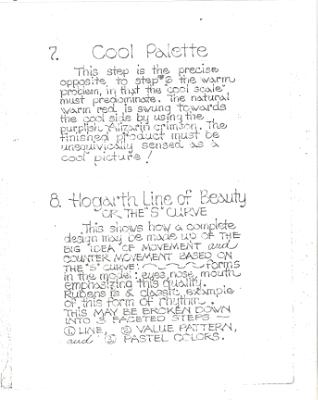 7. Cool Palette
This step is the precise
opposite to step #6 the warm
problem, in that the cool scale
must predominate. The natural
warm red is swung towards
the cool side by using the
purplish Alizarin crimson. The
finished product must be
unequivically sensed as a
cool picture!
8. Hogarth Line of Beauty
OR THE "S" CURVE
This shows how a complete
design may be made up OF THE
BIG IDEA OF MOVEMENT and
COUNTER MOVEMENT BASED ON
THE "S" CURVE: forms
in the model: eyes, nose, mouth
emphasizing this quality.
Rubens is a classic example
of this form of rhythm.
THIS MAY BE BROKEN DOWN
INTO 3 FACETED STEPS —
① LINE, ② VALUE PATTERN,
and ③ PASTEL COLORS.